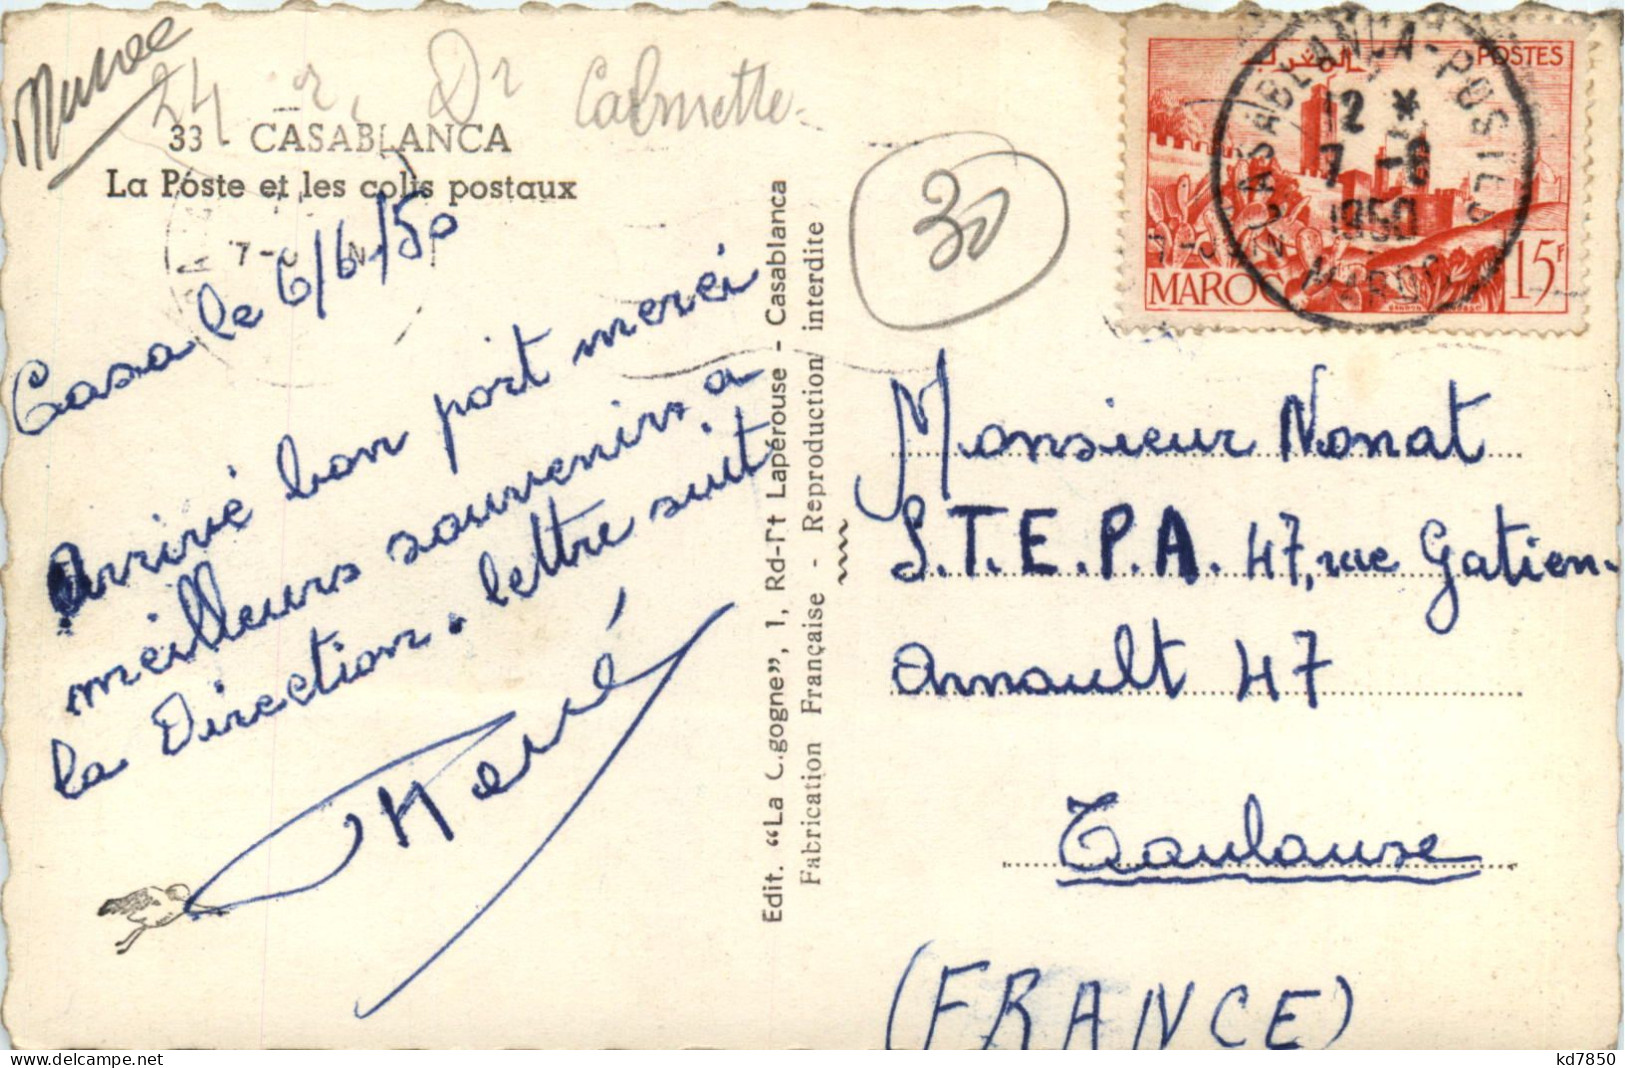 24 r. Dr Calmette.
33 - CASABLANCA
La Poste et les colis postaux
Casa le 6/6/50
Arrivé bon port merci
meilleurs souvenirs a
la Direction. lettre suit
Hervé
Edit. "La C.gogne", 1, Rd-Pt Lapérouse - Casablanca
Fabrication Française - Reproduction interdite
30
POSTES
المغرب
MAROC
15F
CASABLANCA-POSTE
12 *
7 -6
1950
MAROC
Monsieur Nonat
S.T.E.P.A. 47, rue Gatien-
Arnoult 47
Toulouse
(FRANCE)
kd7850